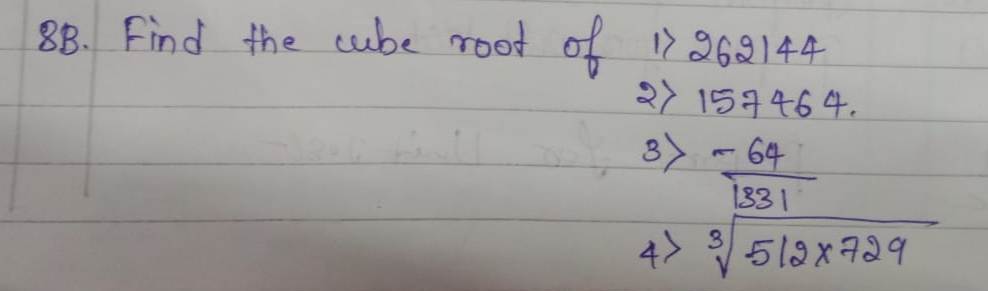 8B. Find the cube root of 1> 262144
2> 157464.
3> -64
1331
4> ∛512×729